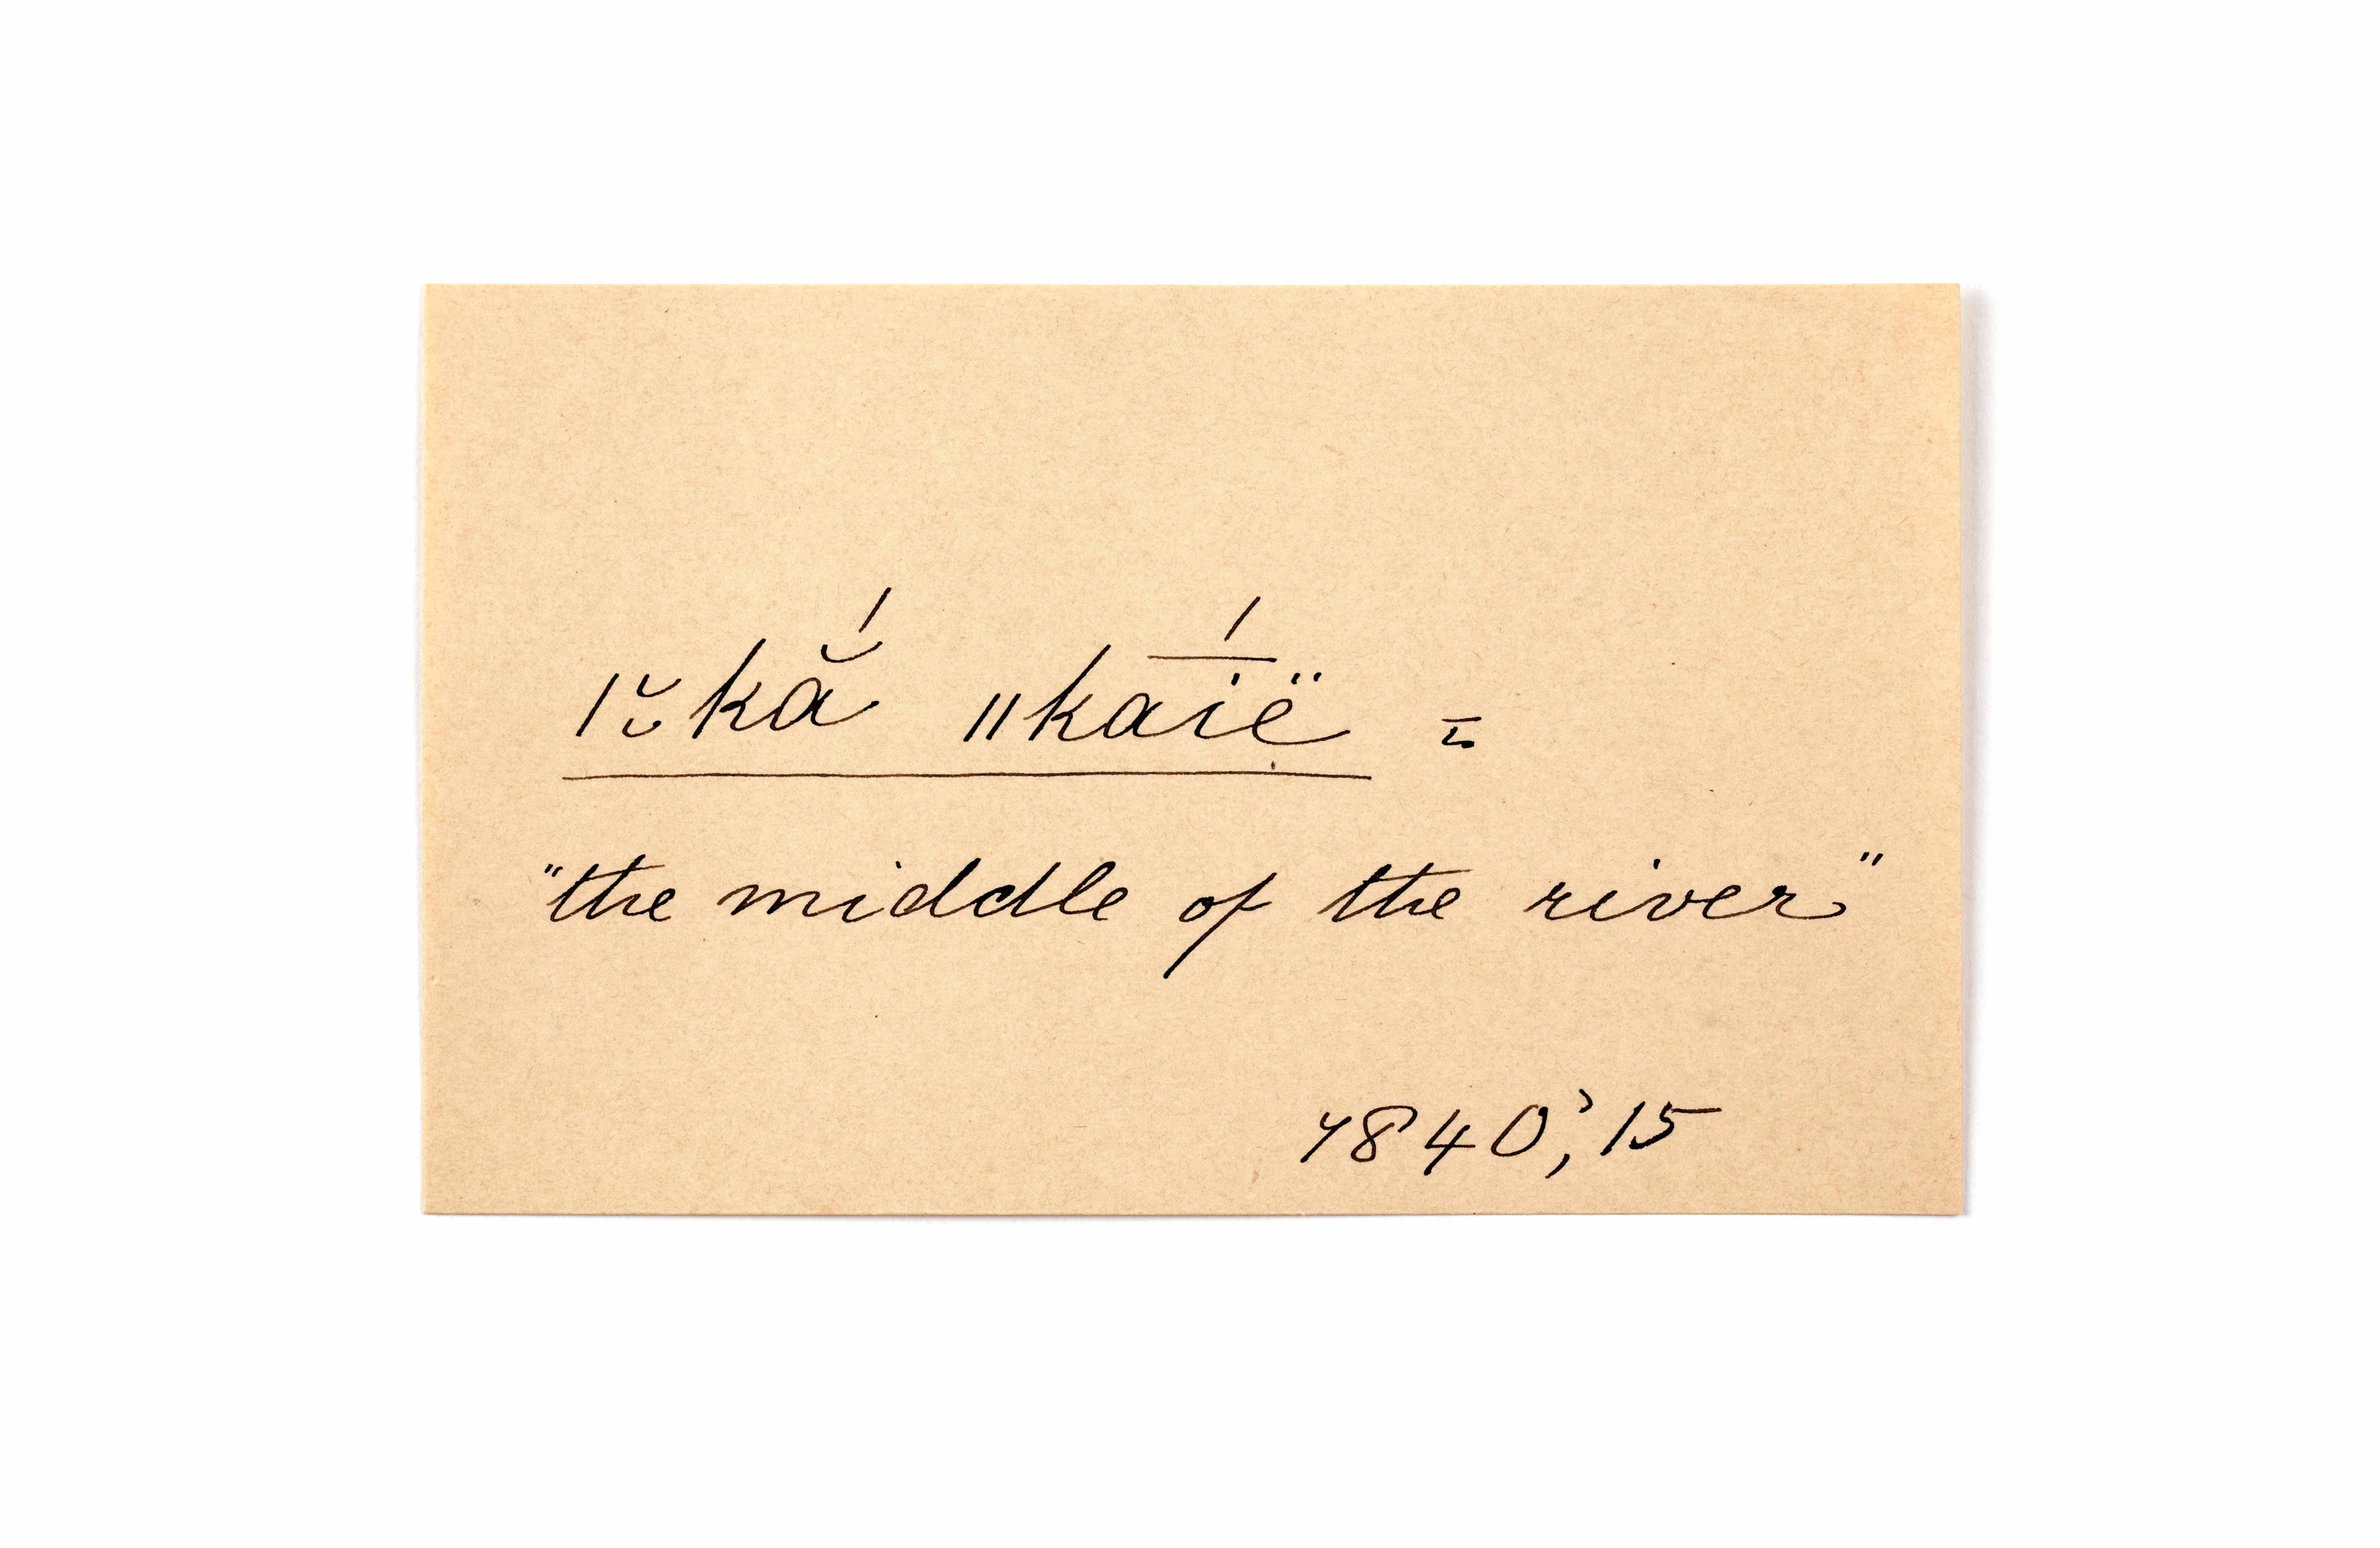 |ːkắ ||kā́ïë̤ =
"the middle of the river"
7840', 15